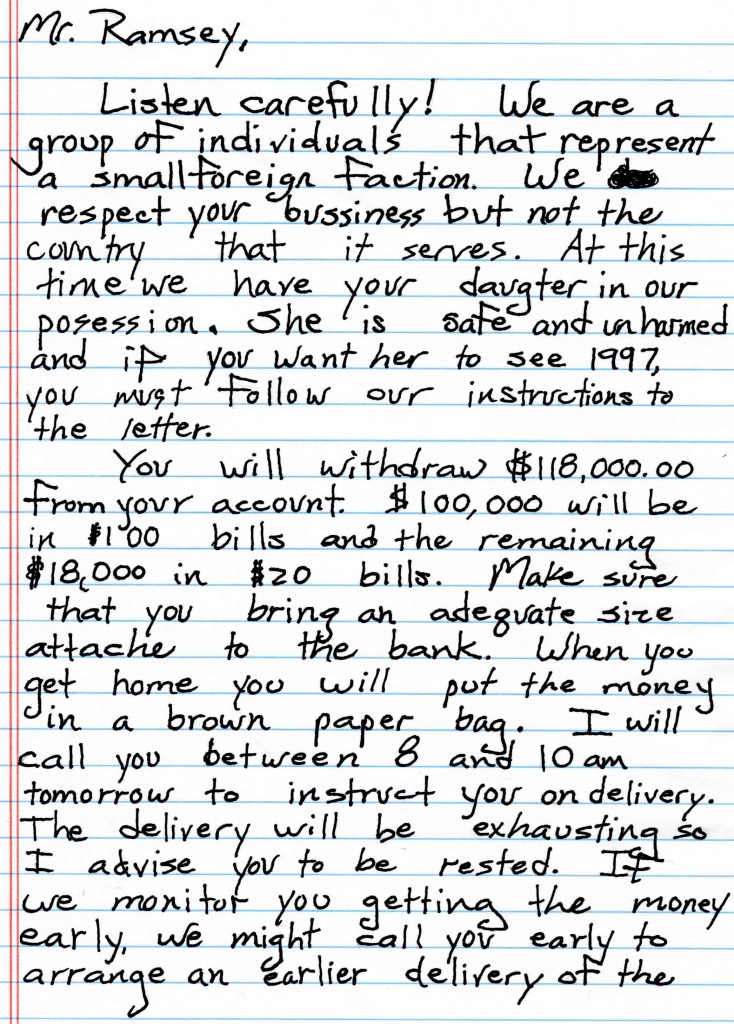 Mr. Ramsey,
Listen carefully! We are a
group of individuals that represent
a small foreign faction. We
respect your bussiness but not the
country that it serves. At this
time we have your daugter in our
posession. She is safe and unharmed
and if you want her to see 1997,
you must follow our instructions to
the letter.
You will withdraw $118,000.00
from your account. $100,000 will be
in $100 bills and the remaining
$18,000 in $20 bills. Make sure
that you bring an adequate size
attache to the bank. When you
get home you will put the money
in a brown paper bag. I will
call you between 8 and 10 am
tomorrow to instruct you on delivery.
The delivery will be exhausting so
I advise you to be rested. If
we monitor you getting the money
early, we might call you early to
arrange an earlier delivery of the